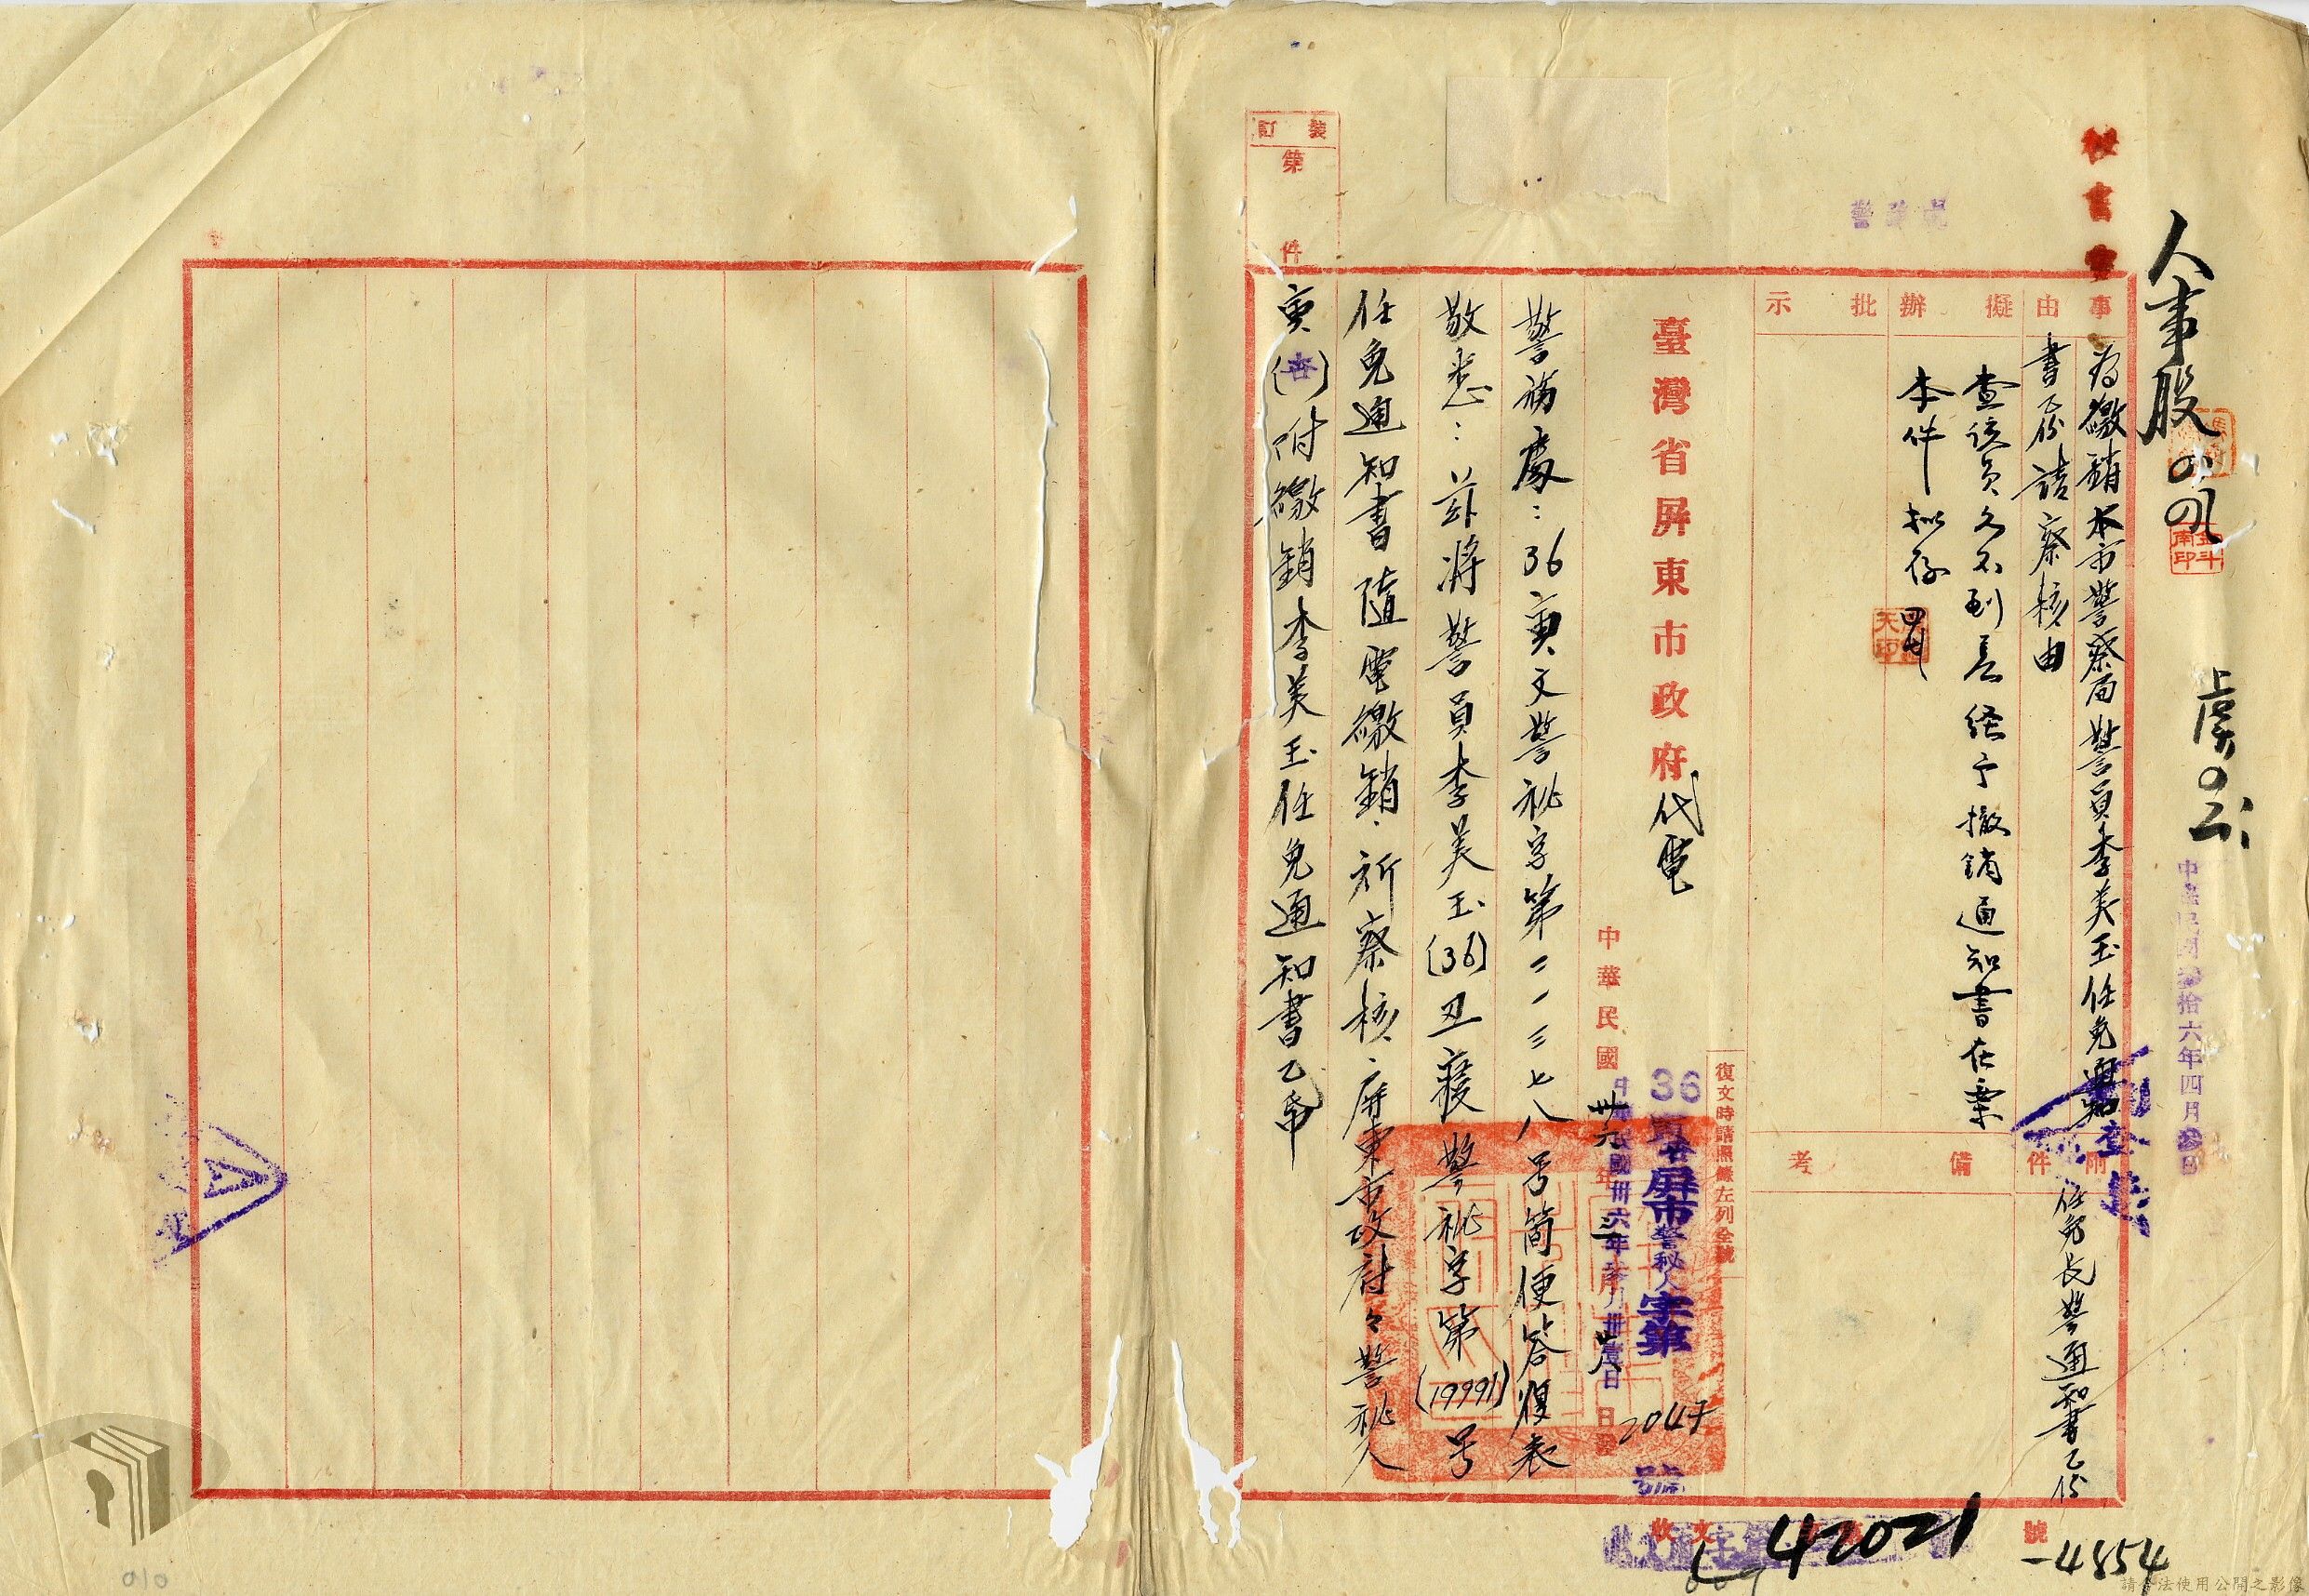 秘書室
人事股
上虞
中華民國叁拾六年四月
警政
事由
為繳銷本市警察局警員李美玉任免通知
書乙份請察核由
附件
任免長警通知書乙份
擬辦
查該員久不到差經予撤銷通知書在案
本件擬存
批示
備考
復文時請照錄左列全號
臺灣省屏東市政府代電
36
屏市警秘人字第
2047
號
中華民國卅六年三月卅一日發
中華民國卅六年叁月卅壹日
警務處：36寅文警秘字第二一一三七八号簡便答復表
敬悉：茲將警員李美玉(36)丑寢警秘字第(19991)号
任免通知書隨電繳銷．祈察核．屏東市政府々警秘人
寅(杏)附繳銷李美玉任免通知書乙帋
裝訂
第
件
收文
42021
號
-4854
009
010
請合法使用公開之影像